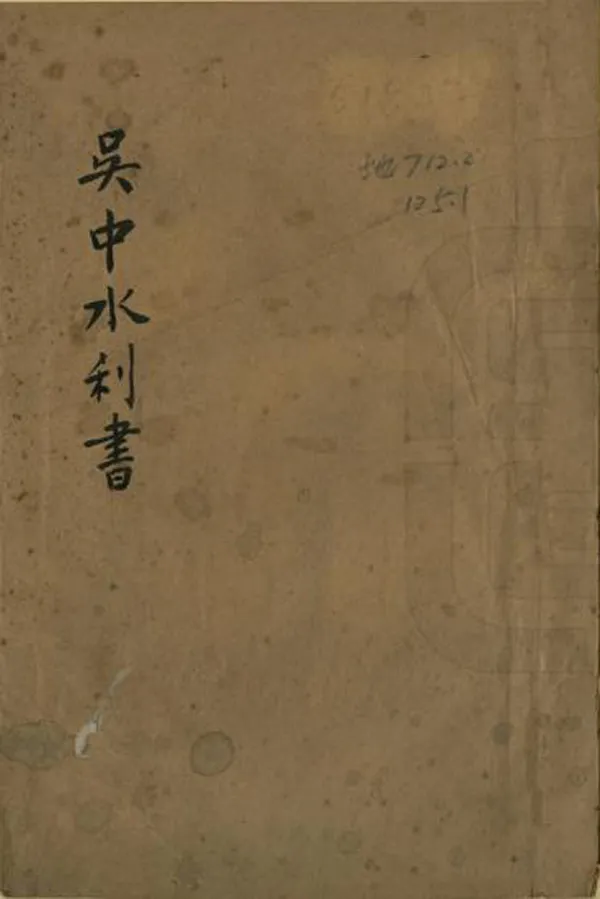 吳中水利書
地712.2
125.1